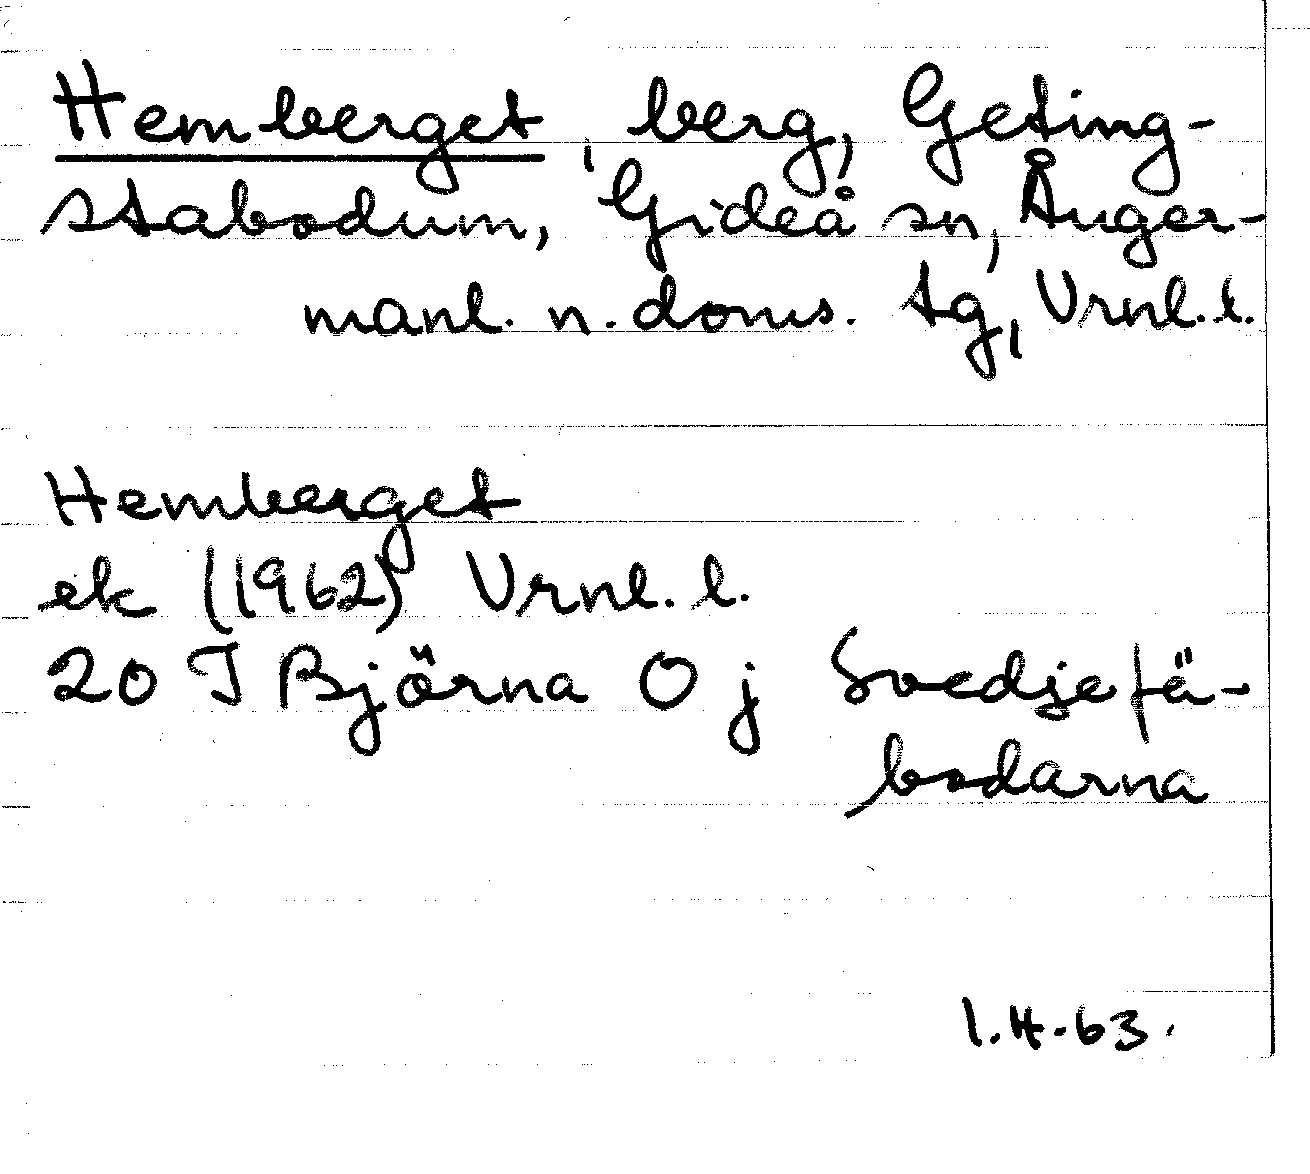 Hemberget, berg, Geting-
stabodum, Gideå sn, Ånger-
manl. n. doms. tg, Vrnl. l.
Hemberget
ek (1962) Vrnl. l.
20 I Björna O j Svedjefä-
bodarna
1.4.63.